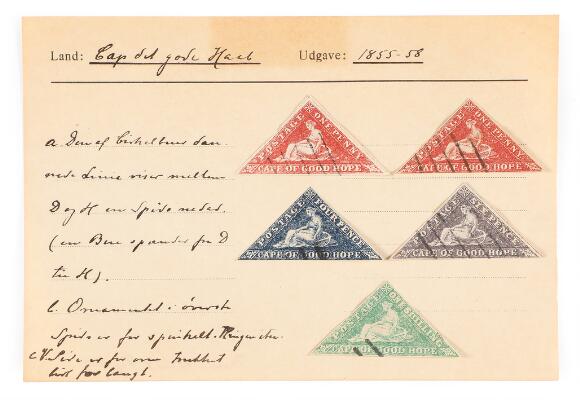 Land: Cap det gode Haab Udgave: 1855-58
a. Den af Cirkelbuer dan-
nede Linie viser mellem
D og H en Spids nedad.
(en Bue spænder fra D
til H).
b. Ornamentet i øverste
Spids er for
c. V. Side er for
for langt.
POSTAGE ONE PENNY
CAPE OF GOOD HOPE
POSTAGE ONE PENNY
CAPE OF GOOD HOPE
POSTAGE FOUR PENCE
CAPE OF GOOD HOPE
POSTAGE SIX PENCE
CAPE OF GOOD HOPE
POSTAGE ONE SHILLING
CAPE OF GOOD HOPE